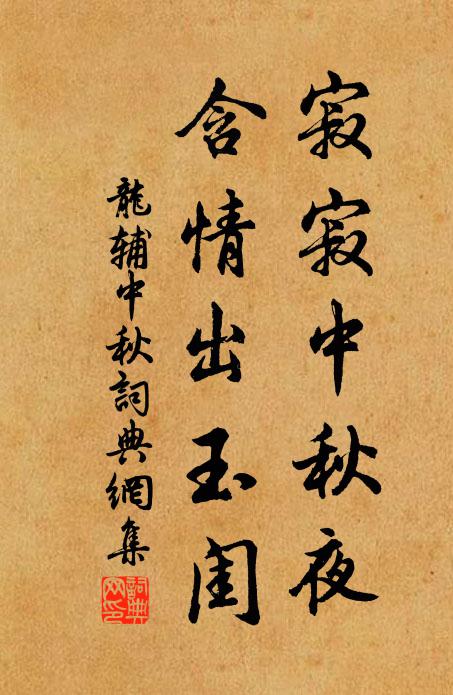 寂寂中秋夜
含情出玉闺
龍辅中秋詞典網集
詞典
网印